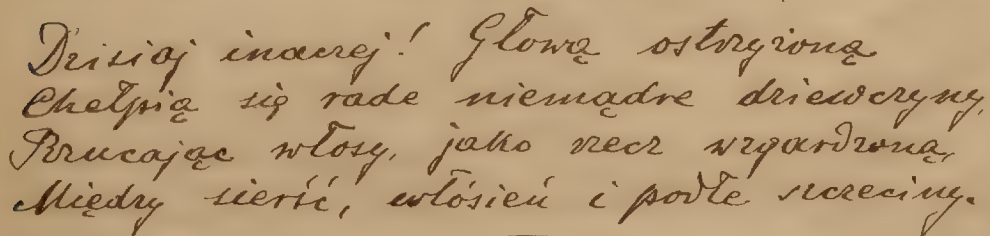 Dzisiaj inaczej! Głową ostrzyżoną
Chełpią się rade niemądre dziewczyny,
Rzucając włosy, jako rzecz wzgardzoną,
Między sierść, włósień i podłe szczeciny.